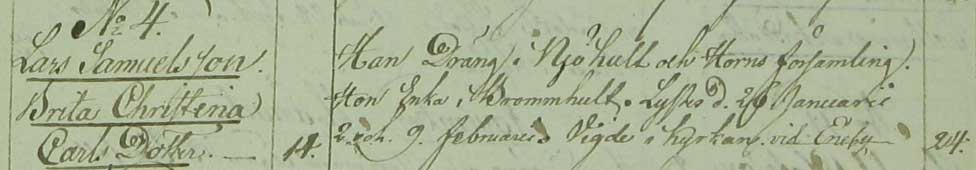 No 4.
Lars Samuelsson. Han Dräng i Njöhult och Horns församling.
Brita Christina Hon Enka i Brommhult. Lystes d. 26 Januarii
Carls Dotter. — 14. 2 och 9. februarii. Vigde i kyrkan vid Eneby 24.